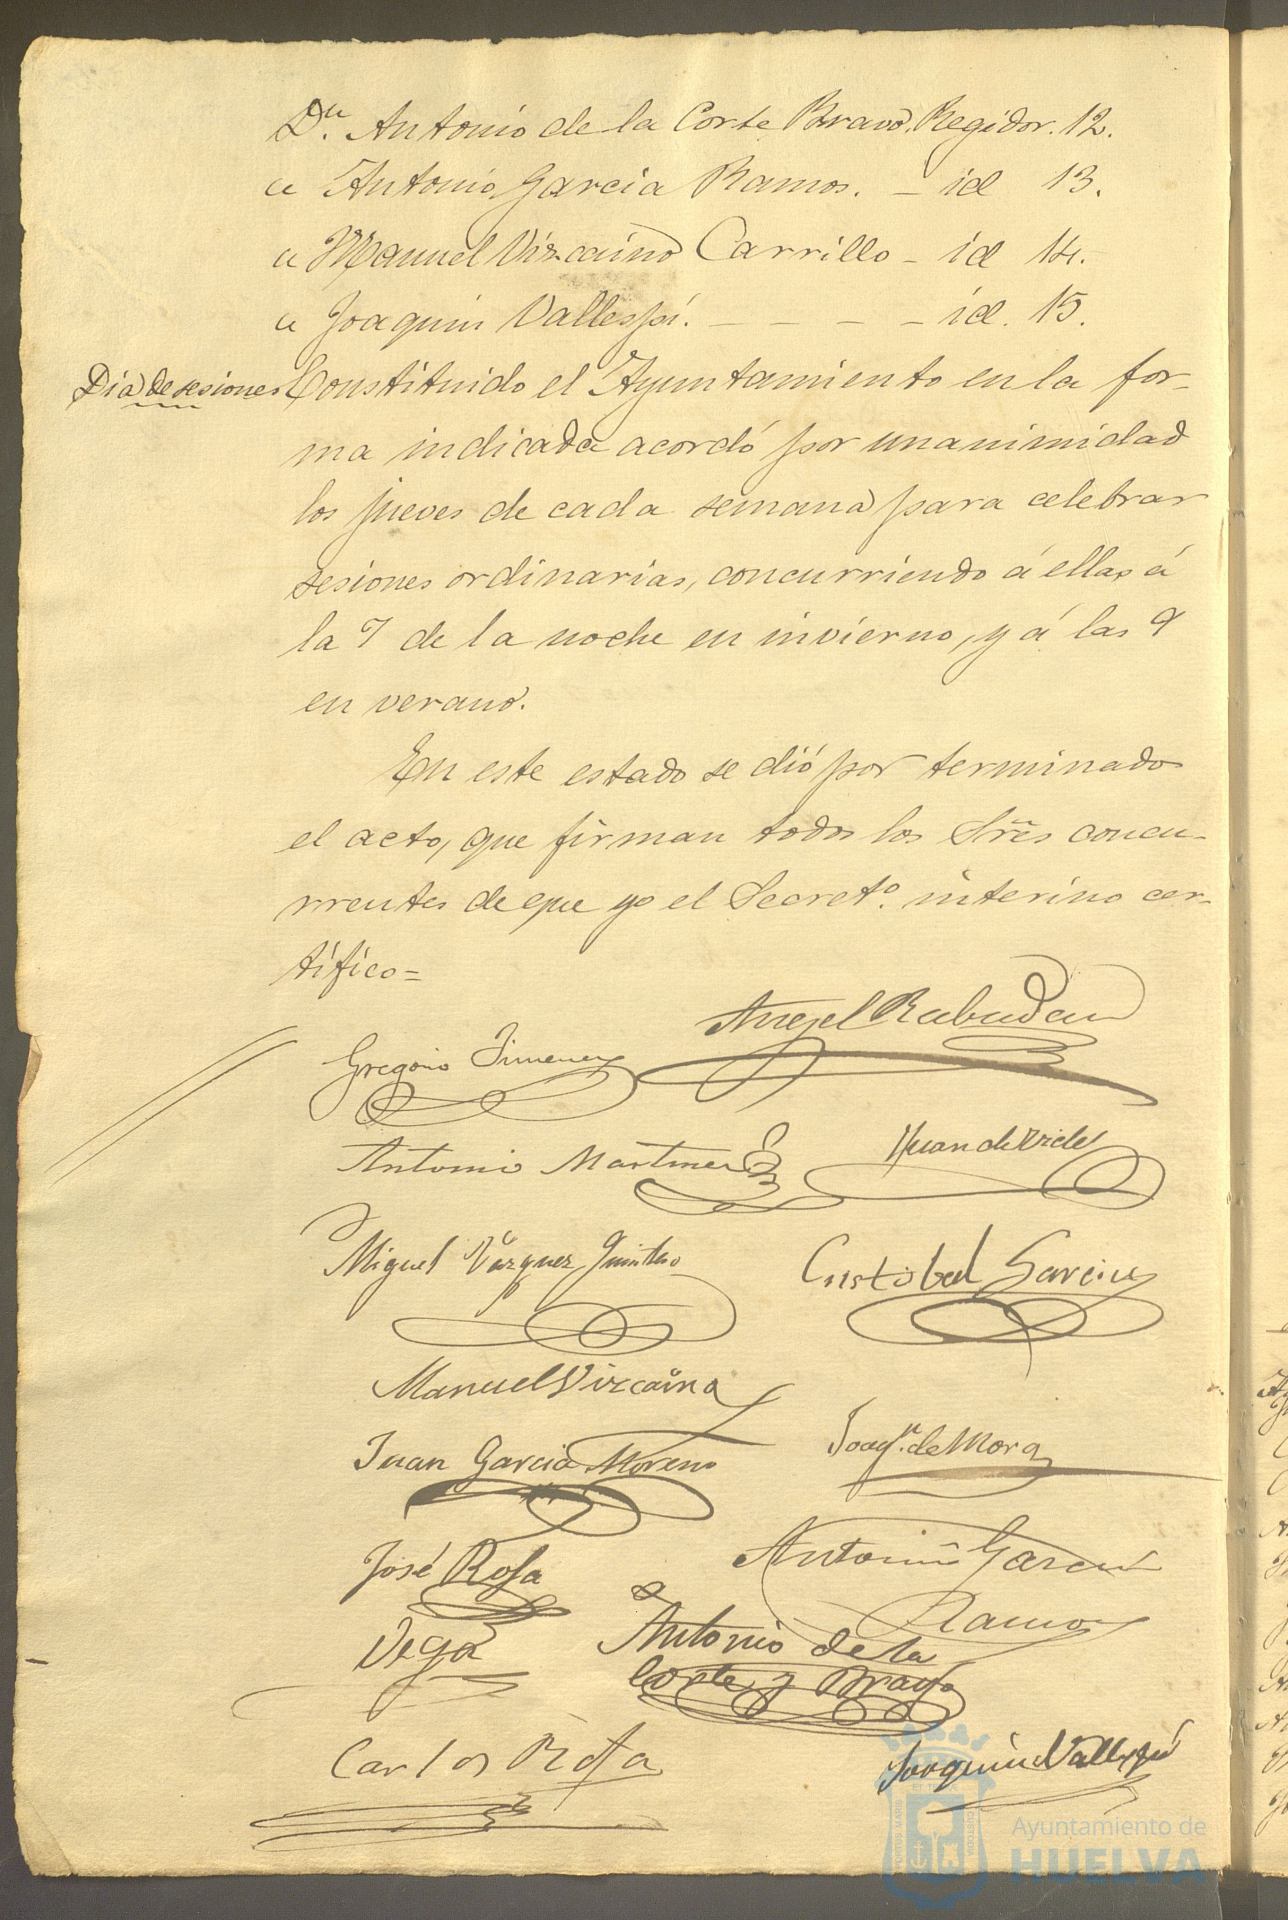 Dn. Antonio de la Corte Bravo. Regidor. 12.
" Antonio Garcia Ramos. _ id 13.
" Manuel Vizcaino Carrillo _ id 14.
" Joaquin Vallespi. _ _ _ _ id. 15.
Dia de sesiones
Constituido el Ayuntamiento en la for-
ma indicada acordó por unanimidad
los jueves de cada semana para celebrar
sesiones ordinarias, concurriendo á ellas á
la 7 de la noche en invierno, y á las 9
en verano.
En este estado se dió por terminado
el acto, que firman todos los Sres concu-
rrentes de que yo el Secreto. interino cer-
tifico=
Angel Rabadan
Gregorio Jimenez
Antonio Martinez
Juan de Vides
Miguel Vazquez
Cristobal Garcia
Manuel Vizcaino
Juan Garcia Moreno
Joaqn. de Mora
José Rosa
Vega
Antonio Garcia
Ramos
Antonio de la
Corte y Bravo
Carlos Rosa
Joaquin Vallespi
Ayuntamiento de
HUELVA